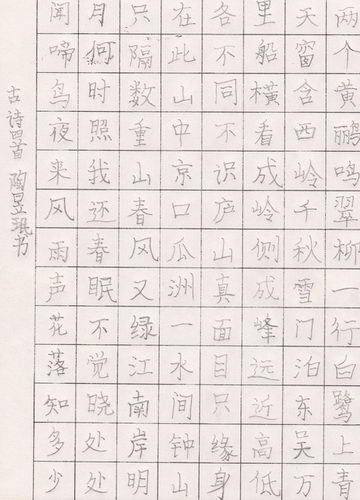 两个黄鹂鸣翠柳一行白鹭上青
天窗含西岭千秋雪门泊东吴万
里船横看成岭侧成峰远近高低
各不同不识庐山真面目只缘身
在此山中京口瓜洲一水间钟山
只隔数重山春风又绿江南岸明
月何时照我还春眠不觉晓处处
闻啼鸟夜来风雨声花落知多少
古诗四首 陶昱珉书